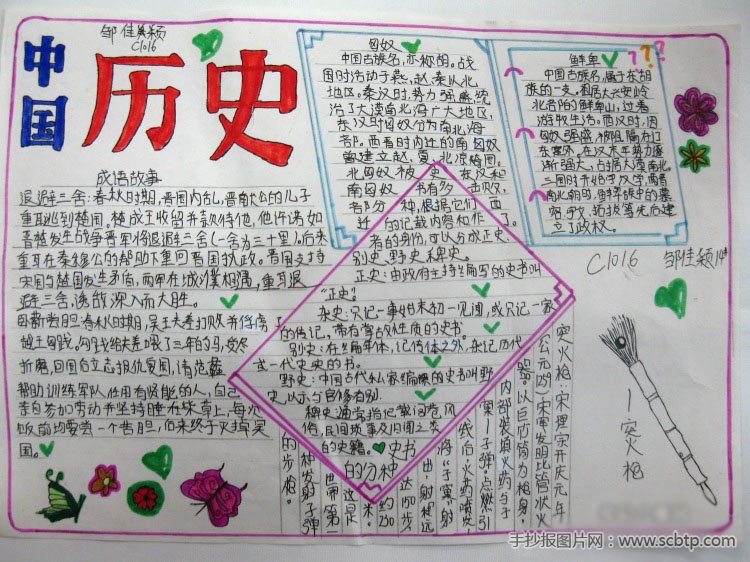 邹佳颖
C1016
中国
历史
成语故事
退避三舍:春秋时期,晋国内乱,晋献公的儿子
重耳逃到楚国。楚成王收留并款待他,他许诺如
晋楚发生战争晋军将退避三舍(一舍为三十里)。后来
重耳在秦穆公的帮助下重回晋国执政。晋国支持
宋国与楚国发生矛盾,两军在城濮相遇,重耳退
避三舍,诱敌深入而大胜。
卧薪尝胆:春秋时期,吴王夫差打败并俘虏了
越王勾践,勾践给夫差喂了三年的马,受尽
折磨,回国后立志报仇复国,请范蠡
帮助训练军队,任用有贤能的人,自己
亲自参加劳动并坚持睡在柴草上,每次
饭前均要尝一个苦胆,后来终于灭掉吴
国。
匈奴
中国古族名,亦称胡。战
国时活动于燕、赵、秦以北
地区。秦汉时,势力强盛,统
治了大漠南北广大地区,
东汉时匈奴分为南北两
部。西晋时内迁的南匈奴
曾建立赵、夏、北凉等国。
鲜卑
???
中国古族名,属于东胡
族的一支。祖居大兴安岭
北台阶鲜卑山,过着
游牧生活。西汉时,因
匈奴强盛
东汉末年势力逐
渐强大,占居大漠南北。
立了政权。
C1016
邹佳颖
史书有多种,
部分种,根据它们
的记载内容和作
者的身份,可以分成正史、
别史、野史、稗史。
正史:由政府主持编写的史书叫
“正史”。
杂史:只记一事始末,初一见闻,或只记一家
的传记,带有掌故性质的史书。
别史:在编年体,记传体之外,杂记历代
或一代史史的书。
野史:中国古代私家编撰的史书叫野
史,以示与官修有别。
稗史通常指记载闾巷风
俗,民间琐事及旧闻之类
的史籍。
史书
的分种
突火枪:宋理宗开庆元年
(公元1259)宋军发明
以巨竹筒为枪身,
内部装填火药与子
窠—子弹。点燃引
线后,火药喷发,
将“子窠”射
出,射程远
达150步
(约230
米)。
这是
世界第一
种发射子弹
的步枪。
突火枪
手抄报图片网:www.scbtp.com